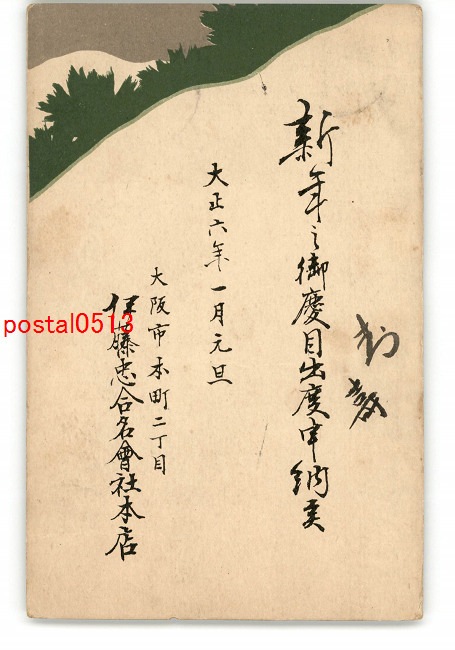 新年之御慶目出度申納候
大正六年一月元旦
大阪市本町二丁目
伊藤忠合名會社本店
postal0513